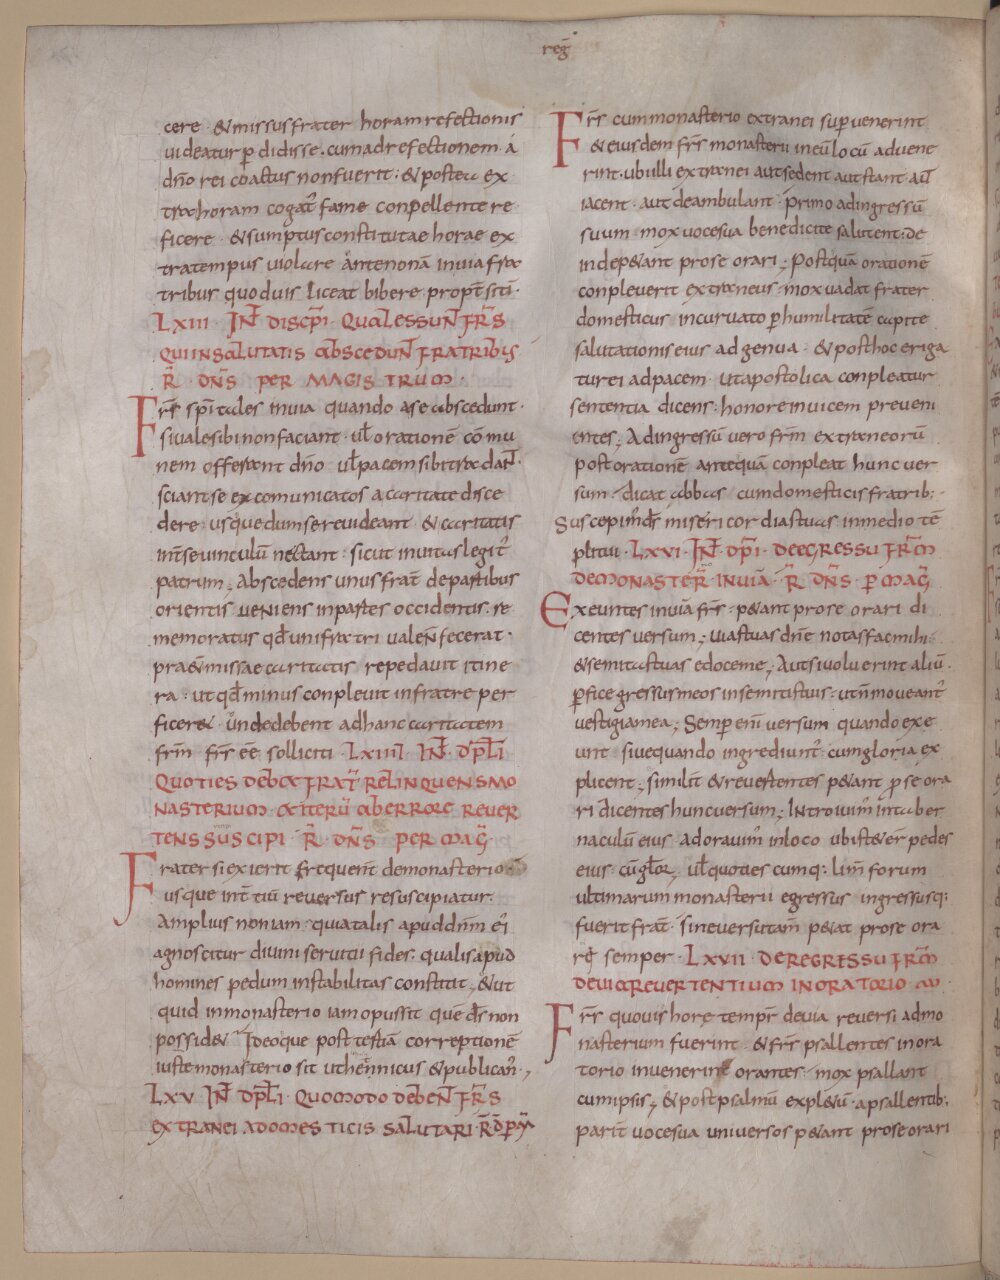 reg̅
cere · & missus frater horam refectionis
uideatur p̲didisse . cum ad refectionem á
dn̅o rei coactus non fuerit : & postea ex
tra horam cogat᷑ fame conpellente re
ficere · & sumptus constitutae horae ex
tra tempus uiolare ante nonā in uia fra
tribus quoduis liceat bibere propt̅ sitī·
LXIII · IN̅T̅ DISCP̅I · QUALES SUN̅T̅ FR̅S
QUI INSALUTATIS ABSCEDUN̅T̅ FRATRIBUS
R̅ · DN̅S PER MAGISTRUM ·
Fr̅s sp̅itales in uia quando a se abscedunt·
si uale sibi non faciant · ul̅ orationē cōmu
nem offerant dn̅o ul̅ pacem sibi tradant·
sciant se excomunicatos a caritate disce
dere · usque dum se reuideant & caritatis
int̅ se uinculū nectant : sicut in uitas legit᷑
patrum ; Abscedens unus frat̅ de partibus
orientis ueniens in partes occidentis . re
memoratus qd̅ uni fratri uale n̅ fecerat ·
praetermissae caritatis repedauit itine
ra · ut qd̅ minus conpleuit in fratre per
ficer& unde debent ad hanc caritatem
frm̅ fr̅s ēē solliciti · LXIIII IN̅T̅ DP̅L̅I
QUOTIES DEBEAT FRAT̅ RELINQUENS MO
NASTERIUM & ITERŪ AB ERRORE REUER
TENS SUSCIPI · R̅ DN̅S PER MAG̅
Frater si exierit frequent̅ de monasterio
usque int̅ tiū reuersus resuscipiatur·
Amplius non iam · quia talis apud dn̅m ei᷑
agnoscitur diuini seruitii fides : qualis apud
homines pedum instabilitas constitit , & ut
quid in monasterio iam opus sit que ds̅ non
possid& · Ideoque post testiā correptionē
iuste monasterio sit ut hethnicus & publican᷑ ·,
LXV IN̅T̅ DP̅L̅I · QUOMODO DEBEN̅T̅ FR̅S
EXTRANEI A DOMESTICIS SALUTARI · R̅ D̅ P̲ M̅
Fr̅s cum monasterio extranei sup̲uenerint
& eiusdem fr̅s monasterii in eūl locū aduene
rint · ubi illi extranei aut sedent aut stant aut
iacent · aut deambulant · primo ad ingressū
suum · mox uoce sua benedicite salutent : de
inde p&ant pro se orari ; Postquā orationē
conpleuerit extraneus · mox uadat frater
domesticus incuruato p̲ humilitatē capite
salutationis eius ad genua · & post hoc eriga
tur ei ad pacem · ut apostolica conpleatur
sententia dicens : honore inuicem preueni
entes ; Ad ingressū uero frm̅ extraneorū
post orationē antequā conpleat hunc uer
sum · dicat abbas cum domesticis fratrib; ·
Suscepim᷑ ds̅ misericordia tuas in medio tē
pli tui · LXVI · IN̅T̅ · DP̅I · DE EGRESSU FR̅M
DE MONASTER̅ IN UIĀ · R̅ DN̅S · P̲ MAG̅
Exeuntes in uiā fr̅s · p&ant pro se orari di
centes uersum ; uias tuas dn̅e notas fac mihi :
& semitas tuas edoce me ; Aut si uoluerint aliū ·
p̲fice gressus meos in semitis tuis · ut n̅ moueant᷑
uestigia mea ; Semp̲ eni̅ uersum quando exe
unt siue quando ingrediunt᷑ · cum gloria ex
plicent ; similit̅ & reuertentes p&ant p̲ se ora
ri dicentes hunc uersum ; Introiuim᷑ in taber
naculū eius adorauim᷑ in loco ubi st&er̅ pedes
eius · cū glor̅ , ul̅ quoties cumq; limī forum
ultimarum monasterii egressus ingressusq;
fuerit frat̅ · sine uersu tam̅ p&at pro se ora
re semper · LXVII · DE REGRESSU FR̅M
DE UIA REUERTENTIUM IN ORATORIO
Fr̅s quouis hore tempr̅ de uia reuersi ad mo
nasterium fuerint · & fr̅s psallentes in ora
torio inuenerint orantes · mox psallant
cum ipsis ; & post psalmū expl&ū · a psallentib;
parit̅ uoce sua uniuersos p&ant pro se orari